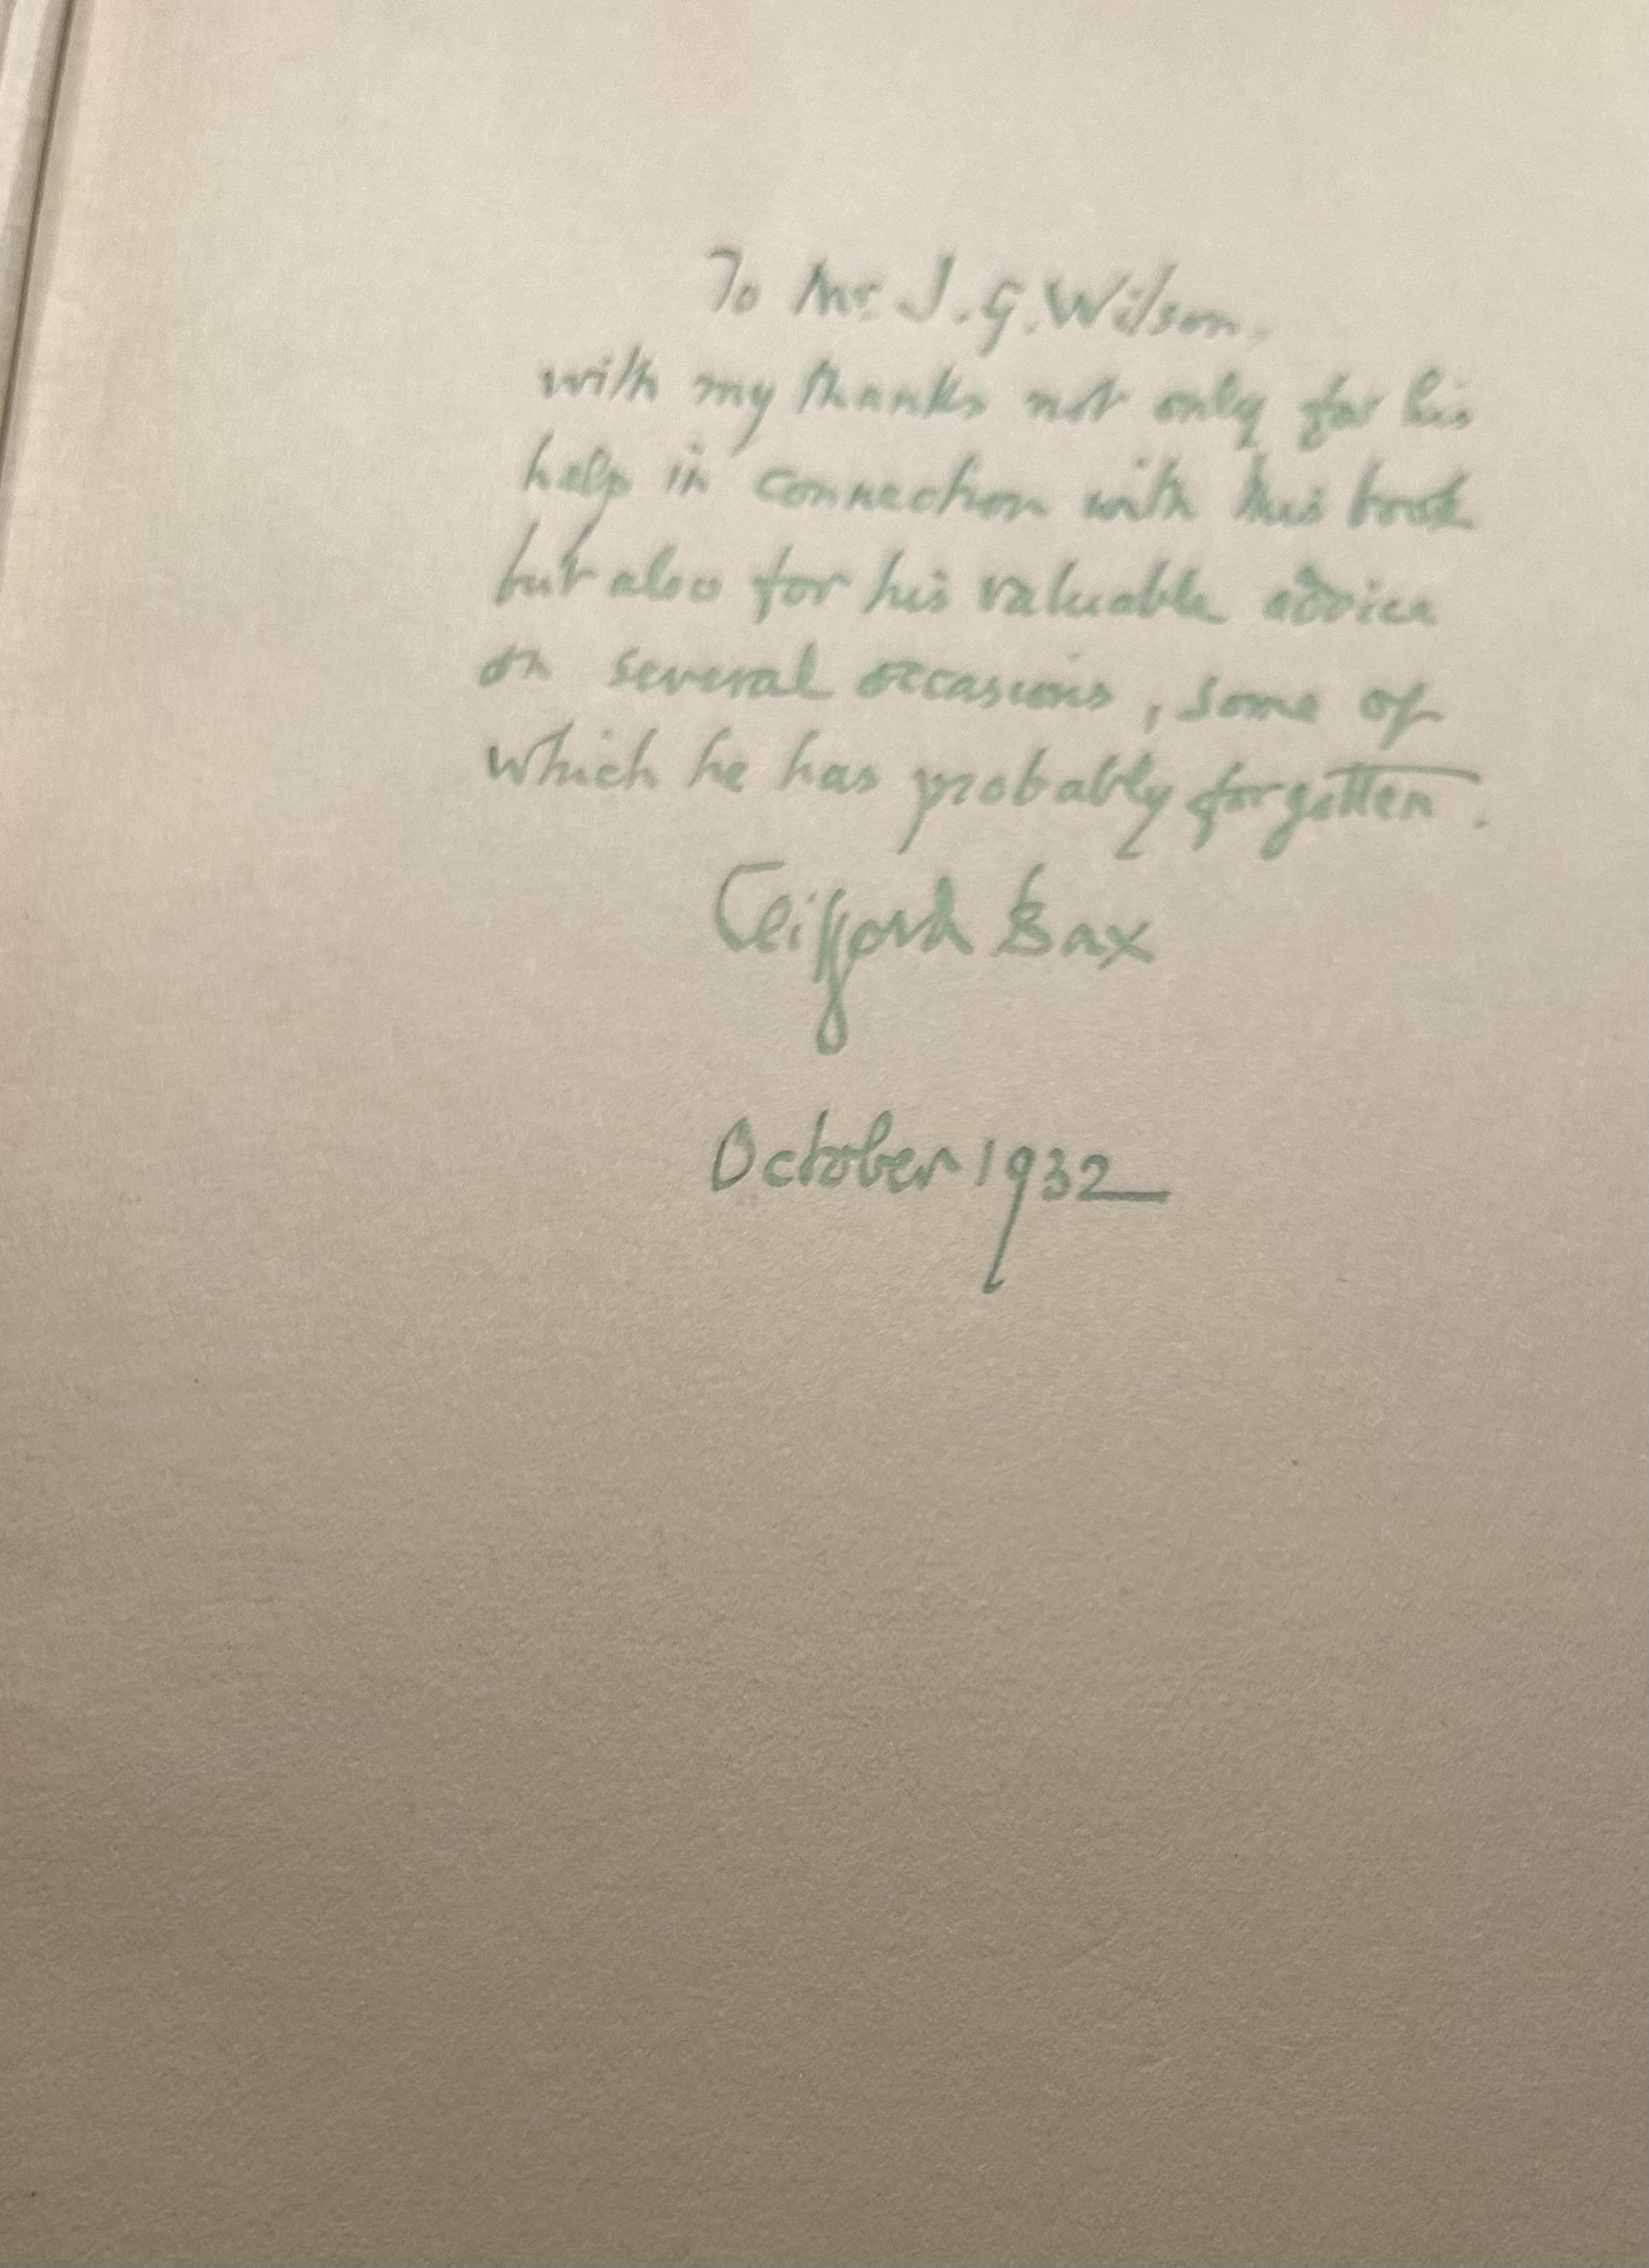 To Mr. J. G. Wilson,
with my thanks not only for his
help in connection with this book
but also for his valuable advice
on several occasions, some of
which he has probably forgotten.
Clifford Bax
October 1932